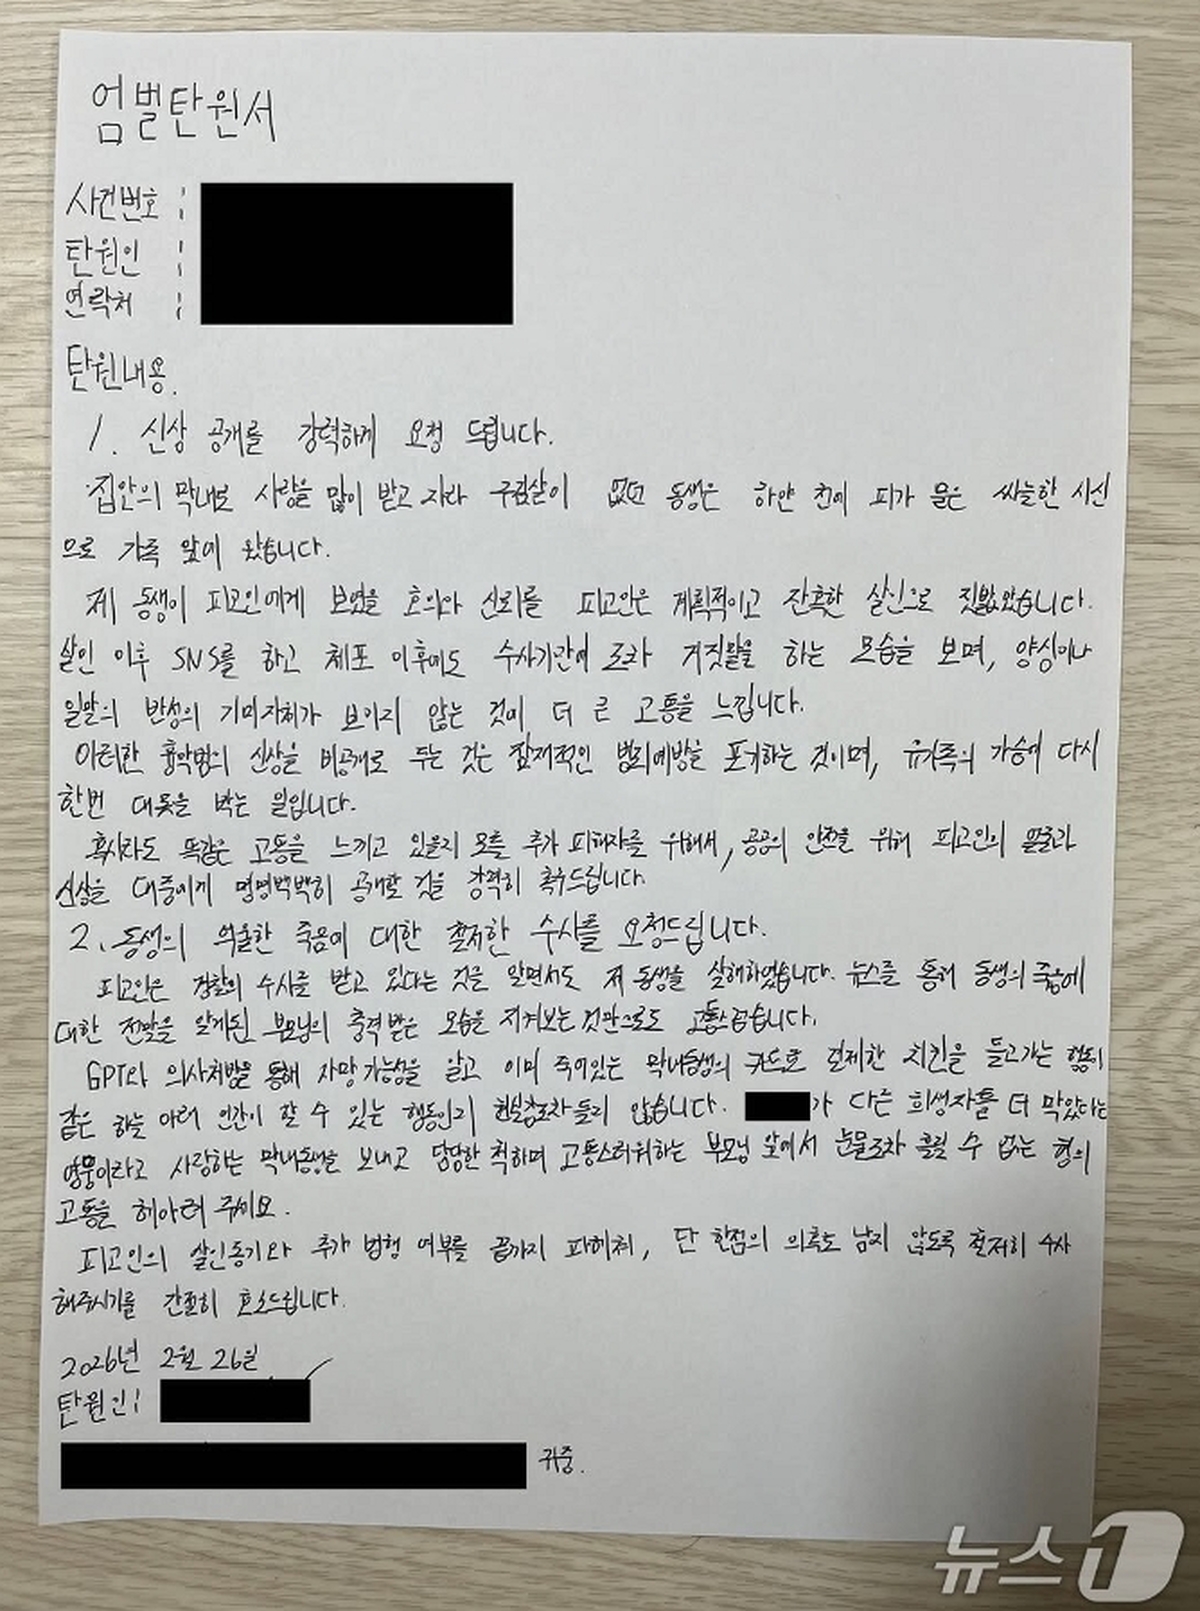 엄벌탄원서
사건번호 :
탄원인 :
연락처 :
탄원내용.
1. 신상 공개를 강력하게 요청 드립니다.
집안의 막내로 사랑을 많이 받고 자라 구김살이 없던 동생은 하얀 천에 피가 묻은 싸늘한 시신
으로 가족 앞에 왔습니다.
제 동생이 피고인에게 보였을 호의와 신뢰를 피고인은 계획적이고 잔혹한 살인으로 짓밟았습니다.
살인 이후 SNS를 하고 체포 이후에도 수사기관에 로차 거짓말을 하는 모습을 보며, 양심이나
일말의 반성의 기미자체가 보이지 않는 것에 더 큰 고통을 느낍니다.
이러한 흉악범의 신상을 비공개로 두는 것은 잠재적인 범죄예방을 포기하는 것이며, 유가족의 가슴에 다시
한번 대못을 박는 일입니다.
혹시라도 똑같은 고통을 느끼고 있을지 모를 추가 피해자를 위해서, 공공의 안전을 위해 피고인의 얼굴과
신상을 대중에게 명명백백히 공개할 것을 강력히 촉구드립니다.
2. 동생의 억울한 죽음에 대한 철저한 수사를 요청드립니다.
피고인은 경찰의 수사를 받고 있다는 것을 알면서도 제 동생을 살해하였습니다. 뉴스를 통해 동생의 죽음에
대한 전말을 알게된 부모님의 충격받은 모습을 지켜보는것만으로도 고통스럽습니다.
GPT와 의사처방을 통해 사망가능성을 알고 이미 죽어있는 막내동생의 카드로 결제한 치킨을 들고가는 행동
같은 하는 이런 인간이 할 수 있는 행동인지 현실감조차 들지 않습니다. 가 다른 희생자를 더 막았다는
영웅이라고 사랑하는 막내동생을 보내고 담담한 척하며 고통스러워하는 부모님 앞에서 눈물조차 흘릴 수 없는 형의
고통을 헤아려 주세요.
피고인의 살인동기와 추가 범행 여부를 끝까지 파헤쳐, 단 한점의 의혹도 남지 않도록 철저히 수사
해주시기를 간절히 호소드립니다.
2026년 2월 26일
탄원인:
귀중.
뉴스1